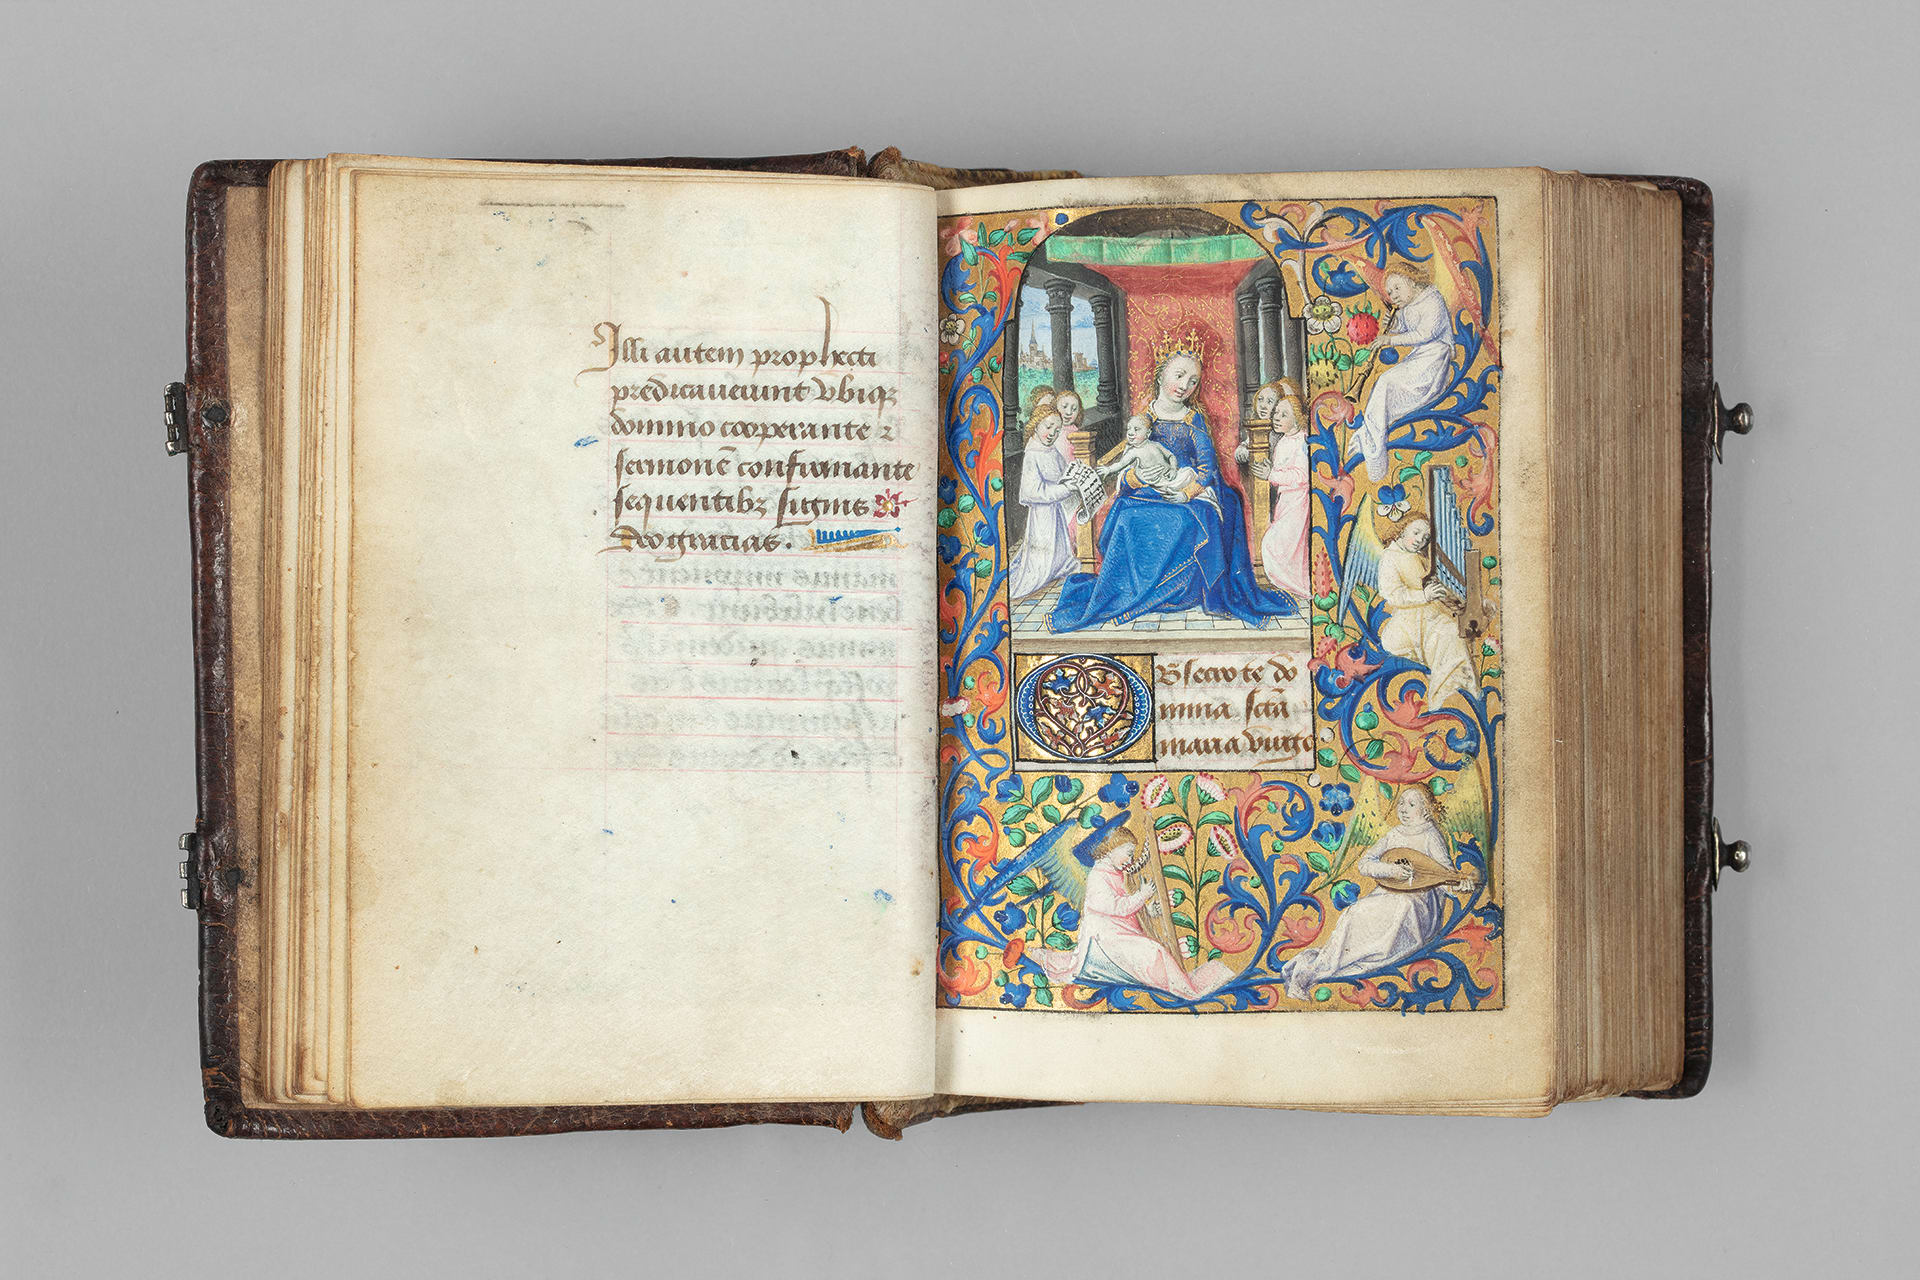 Illi autem prophecti
predicauerunt vbiqꝫ
domino cooperante ⁊
sermonē confirmante
sequentibꝫ signis
Deo gracias.
Obsecro te do
mina sctā
maria virgo